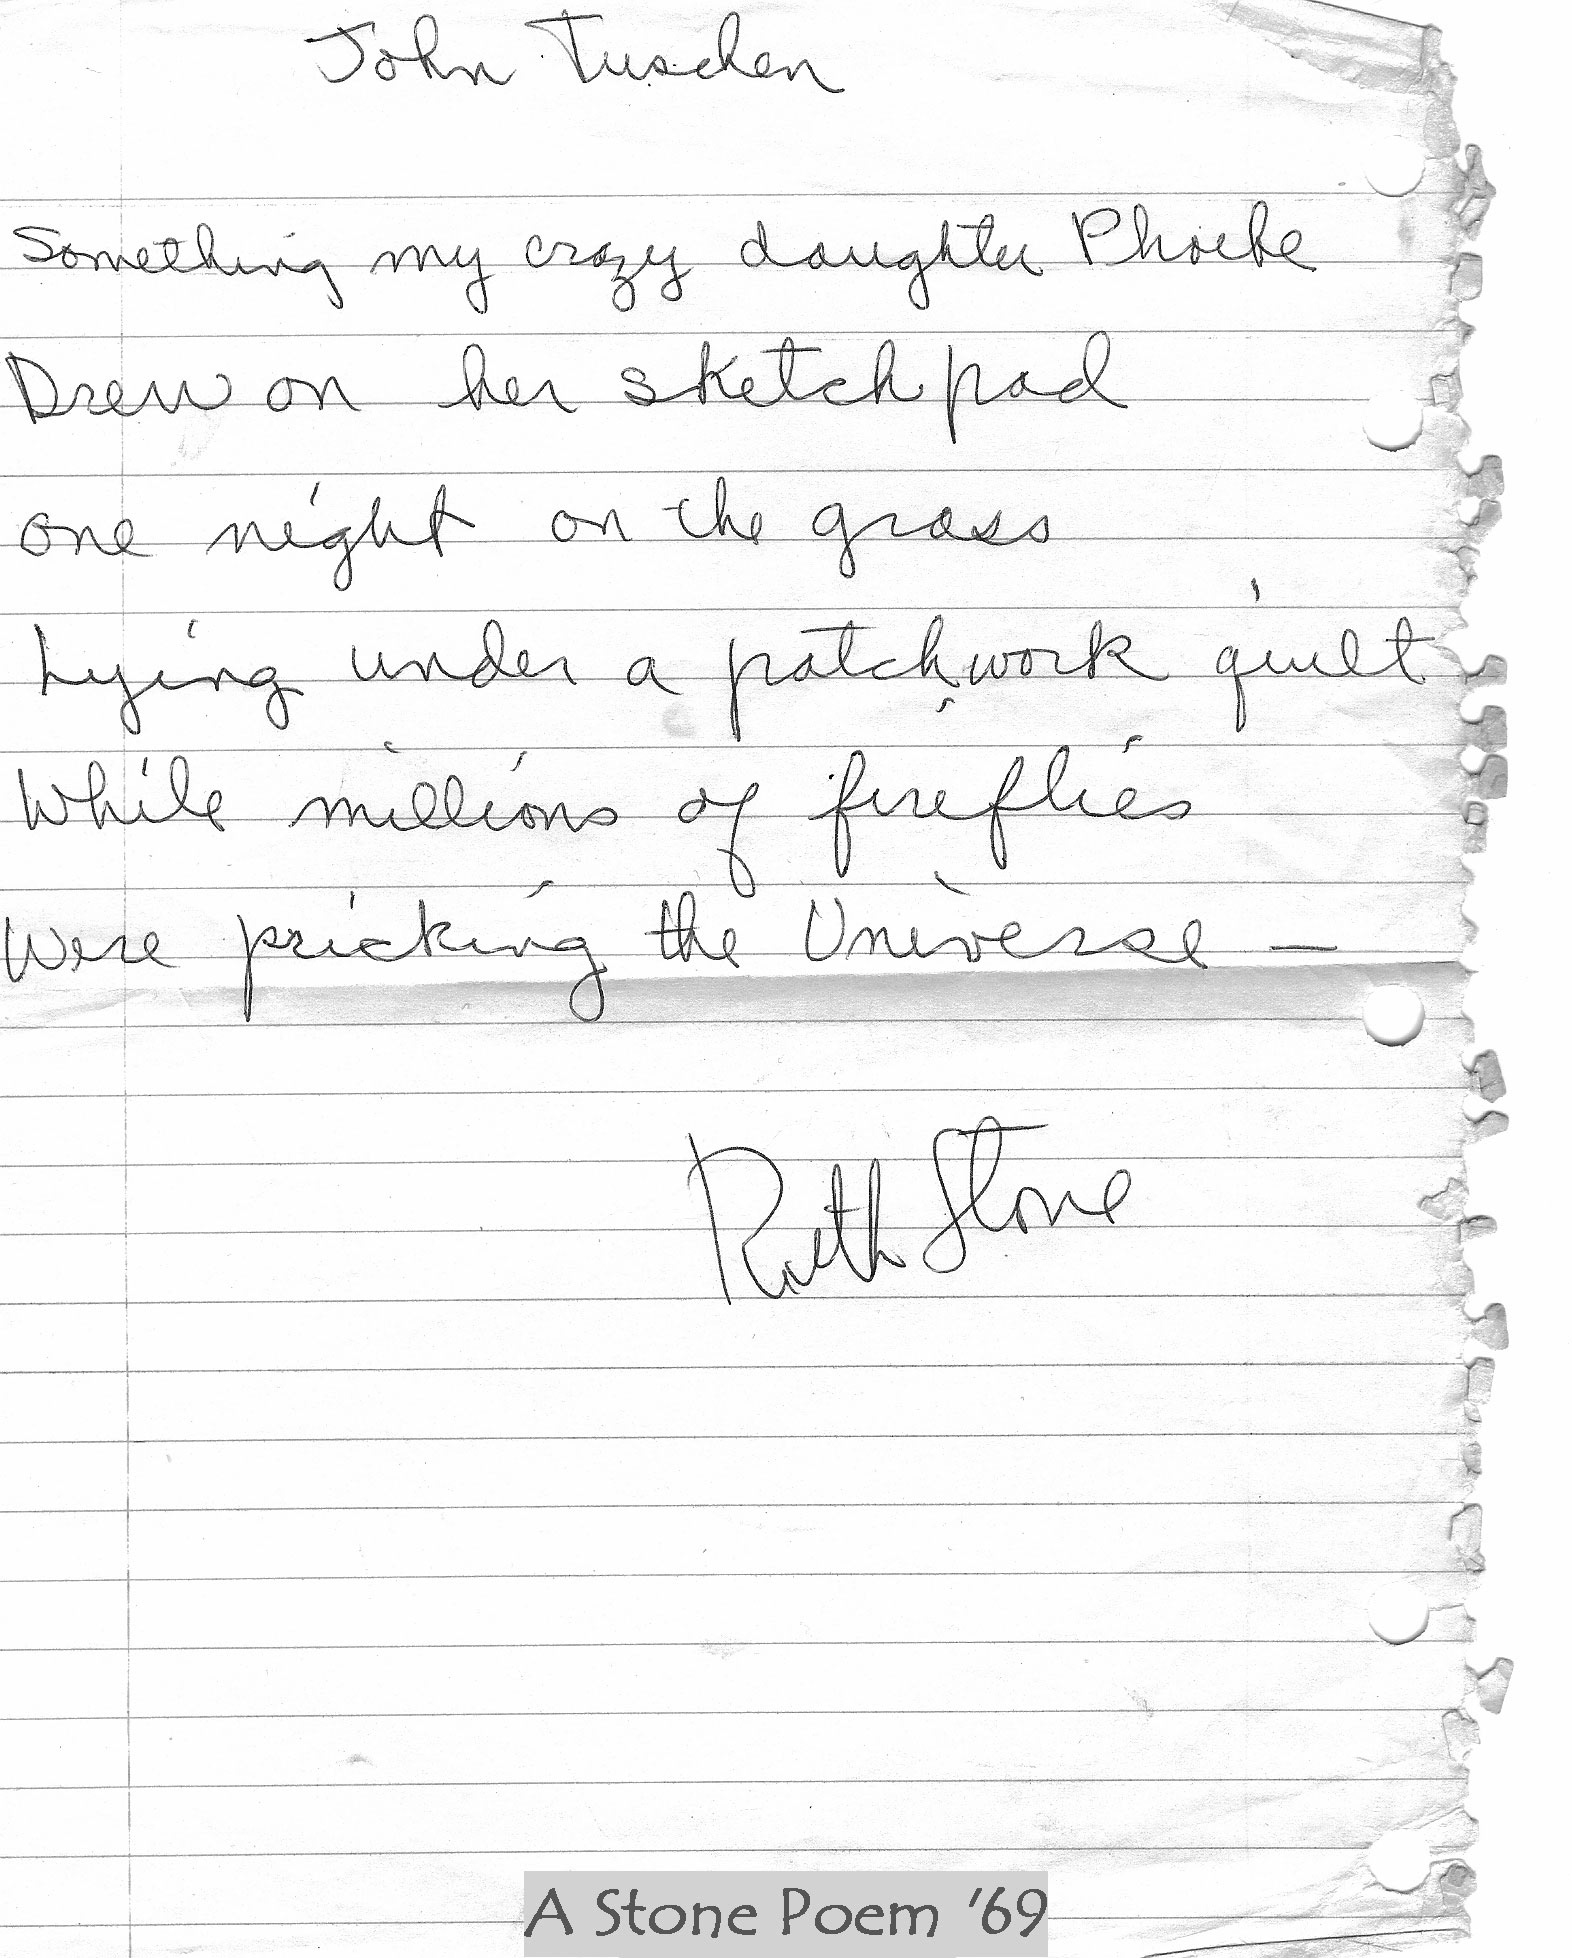 John Tuschen
Something my crazy daughter Phoebe
Drew on her sketch pad
one night on the grass
Lying under a patchwork quilt
While millions of fireflies
Were pricking the Universe —
Ruth Stone
A Stone Poem '69